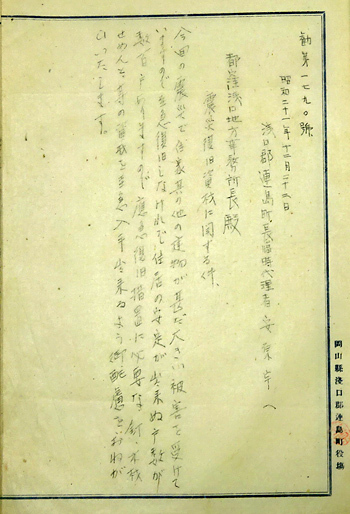 勧第一七九〇號
昭和二十一年十二月二十三日
浅口郡連島町長臨時代理者 安原岸へ
都窪浅口地方事務所長殿
震災復旧資材に関する件
今回の震災で住家其の他の建物が甚だ大きい被害を受けて
いますので至急復旧しなければ住居の安定が出来ぬ戸数が
数百戸ありますので應急復旧措置に必要な釘、木材
せめんと等の資材を至急入手出来るよう御配慮をおねが
いいたします。
岡山縣浅口郡連島町役場